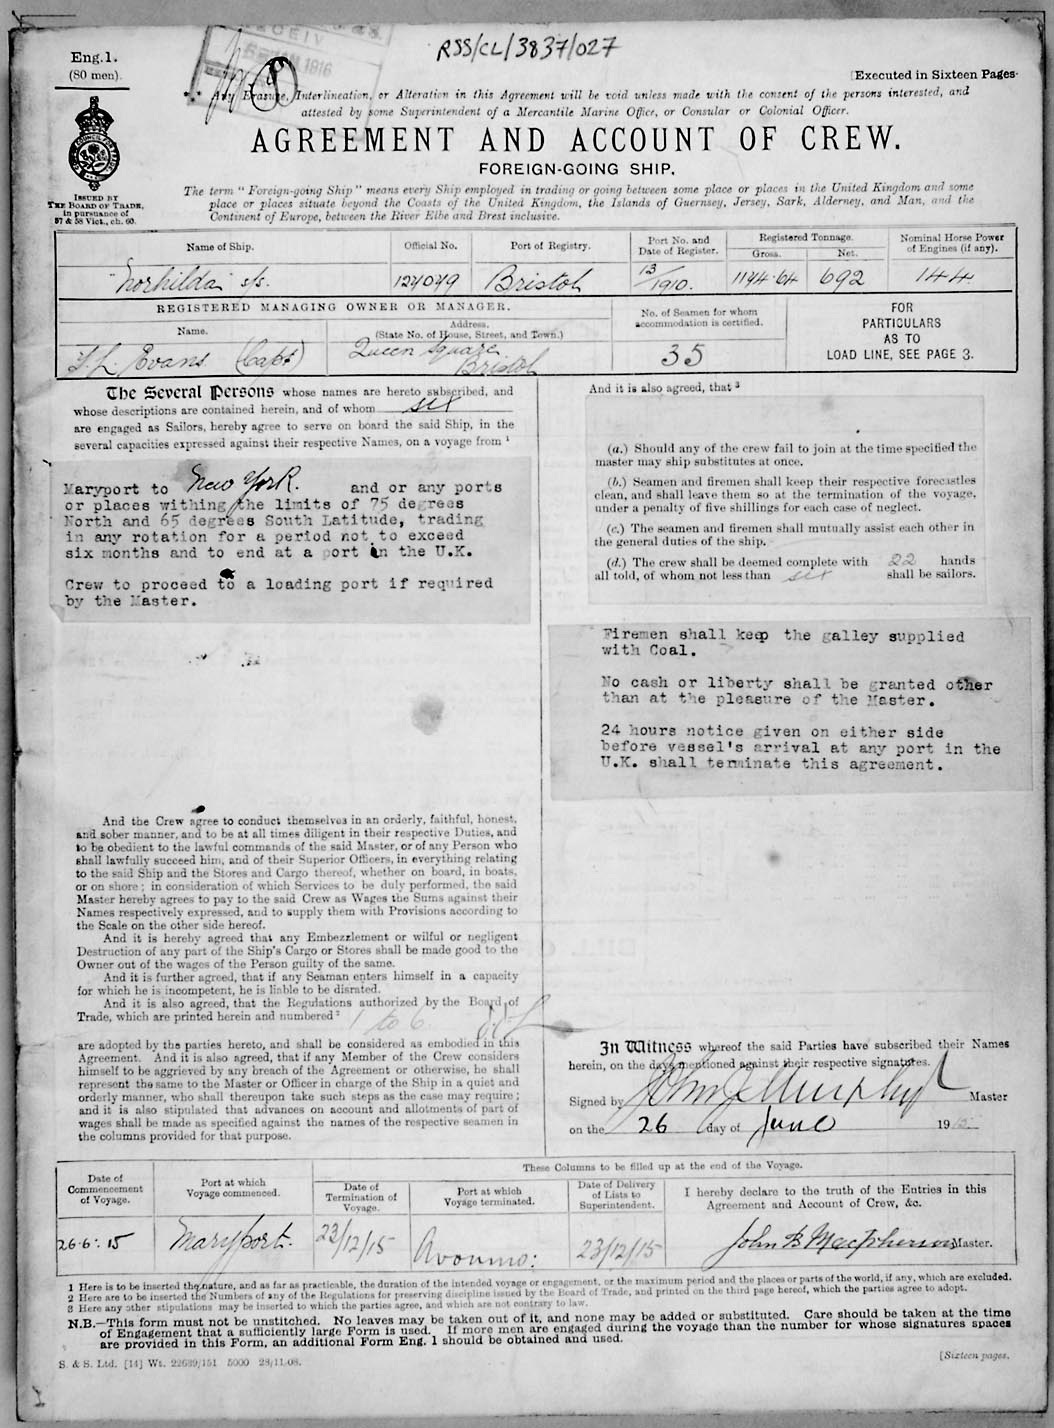 RSS/CL/3837/027
Eng. 1.
(80 men).
RECEIV
JAN 1916
8
[Executed in Sixteen Pages.
Any Erasure, Interlineation, or Alteration in this Agreement will be void unless made with the consent of the persons interested, and
attested by some Superintendent of a Mercantile Marine Office, or Consular or Colonial Officer.
AGREEMENT AND ACCOUNT OF CREW.
FOREIGN-GOING SHIP.
ISSUED BY
THE BOARD OF TRADE,
in pursuance of
57 & 58 Vict., ch. 60.
The term "Foreign-going Ship" means every Ship employed in trading or going between some place or places in the United Kingdom and some
place or places situate beyond the Coasts of the United Kingdom, the Islands of Guernsey, Jersey, Sark, Alderney, and Man, and the
Continent of Europe, between the River Elbe and Brest inclusive.
Name of Ship. Official No. Port of Registry. Port No. and Date of Register. Registered Tonnage. Gross. Net. Nominal Horse Power of Engines (if any).
"Norhilda" s/s. 127079 Bristol 13/1910. 1174.64 692 144
REGISTERED MANAGING OWNER OR MANAGER.
Name. Address. (State No. of House, Street, and Town.)
No. of Seamen for whom accommodation is certified.
FOR
PARTICULARS
AS TO
LOAD LINE, SEE PAGE 3.
Evans (Capt) Queen Square Bristol 35
The Several Persons whose names are hereto subscribed, and
whose descriptions are contained herein, and of whom six
are engaged as Sailors, hereby agree to serve on board the said Ship, in the
several capacities expressed against their respective Names, on a voyage from 1
Maryport to New York. and or any ports
or places withing the limits of 75 degrees
North and 65 degrees South Latitude, trading
in any rotation for a period not to exceed
six months and to end at a port in the U.K.
Crew to proceed to a loading port if required
by the Master.
And the Crew agree to conduct themselves in an orderly, faithful, honest,
and sober manner, and to be at all times diligent in their respective Duties, and
to be obedient to the lawful commands of the said Master, or of any Person who
shall lawfully succeed him, and of their Superior Officers, in everything relating
to the said Ship and the Stores and Cargo thereof, whether on board, in boats,
or on shore; in consideration of which Services to be duly performed, the said
Master hereby agrees to pay to the said Crew as Wages the Sums against their
Names respectively expressed, and to supply them with Provisions according to
the Scale on the other side hereof.
And it is hereby agreed that any Embezzlement or wilful or negligent
Destruction of any part of the Ship's Cargo or Stores shall be made good to the
Owner out of the wages of the Person guilty of the same.
And it is further agreed, that if any Seaman enters himself in a capacity
for which he is incompetent, he is liable to be disrated.
And it is also agreed, that the Regulations authorized by the Board of
Trade, which are printed herein and numbered 2 1 to 6
are adopted by the parties hereto, and shall be considered as embodied in this
Agreement. And it is also agreed, that if any Member of the Crew considers
himself to be aggrieved by any breach of the Agreement or otherwise, he shall
represent the same to the Master or Officer in charge of the Ship in a quiet and
orderly manner, who shall thereupon take such steps as the case may require;
and it is also stipulated that advances on account and allotments of part of
wages shall be made as specified against the names of the respective seamen in
the columns provided for that purpose.
And it is also agreed, that 3
(a.) Should any of the crew fail to join at the time specified the
master may ship substitutes at once.
(b.) Seamen and firemen shall keep their respective forecastles
clean, and shall leave them so at the termination of the voyage,
under a penalty of five shillings for each case of neglect.
(c.) The seamen and firemen shall mutually assist each other in
the general duties of the ship.
(d.) The crew shall be deemed complete with 22 hands
all told, of whom not less than six shall be sailors.
Firemen shall keep the galley supplied
with Coal.
No cash or liberty shall be granted other
than at the pleasure of the Master.
24 hours notice given on either side
before vessel's arrival at any port in the
U.K. shall terminate this agreement.
In Witness whereof the said Parties have subscribed their Names
herein, on the days mentioned against their respective signatures.
Signed by John J Murphy Master
on the 26 day of June 1915
These Columns to be filled up at the end of the Voyage.
Date of Commencement of Voyage. Port at which Voyage commenced. Date of Termination of Voyage. Port at which Voyage terminated. Date of Delivery of Lists to Superintendent. I hereby declare to the truth of the Entries in this Agreement and Account of Crew, &c.
26.6.15 Maryport. 23/12/15 Avonmo: 23/12/15 John B Macpherson Master.
1 Here is to be inserted the nature, and as far as practicable, the duration of the intended voyage or engagement, or the maximum period and the places or parts of the world, if any, which are excluded.
2 Here are to be inserted the Numbers of any of the Regulations for preserving discipline issued by the Board of Trade, and printed on the third page hereof, which the parties agree to adopt.
3 Here any other stipulations may be inserted to which the parties agree, and which are not contrary to law.
N.B.—This form must not be unstitched. No leaves may be taken out of it, and none may be added or substituted. Care should be taken at the time
of Engagement that a sufficiently large Form is used. If more men are engaged during the voyage than the number for whose signatures spaces
are provided in this Form, an additional Form Eng. 1 should be obtained and used.
S. & S. Ltd. [14] Wt. 22639/151 5000 28/11/08.
[Sixteen pages.